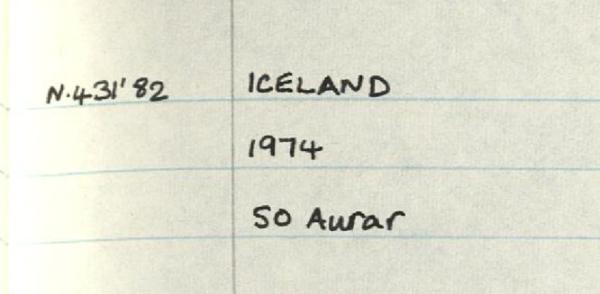 N.431'82 ICELAND
1974
50 Aurar